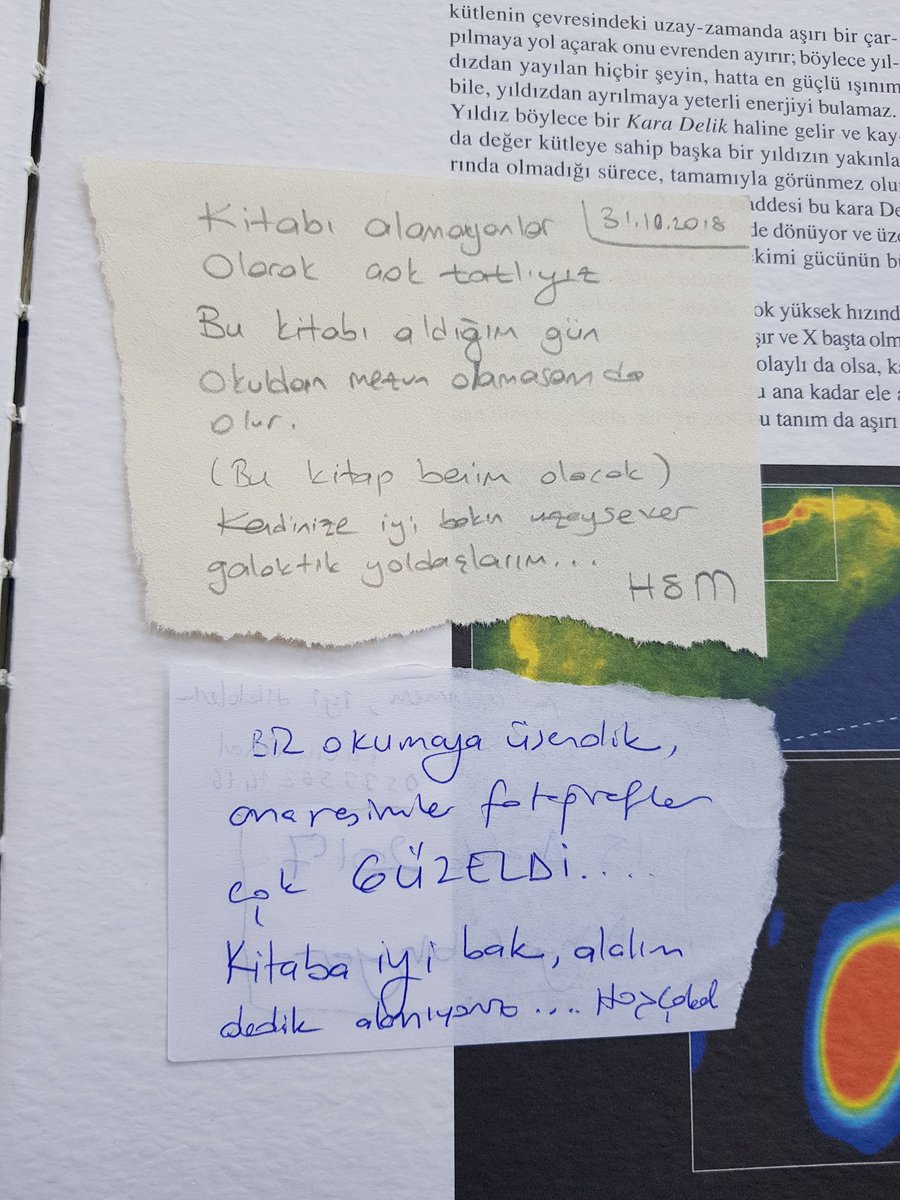 kütlenin çevresindeki uzay-zamanda aşırı bir çar-
pılmaya yol açarak onu evrenden ayırır; böylece yıl-
dızdan yayılan hiçbir şeyin, hatta en güçlü ışınım
bile, yıldızdan ayrılmaya yeterli enerjiyi bulamaz.
Yıldız böylece bir Kara Delik haline gelir ve kay-
da değer kütleye sahip başka bir yıldızın yakınla-
rında olmadığı sürece, tamamıyla görünmez olu
addesi bu kara De
de dönüyor ve üze
kimi gücünün bü
ok yüksek hızınd
şır ve X başta olm
olaylı da olsa, ka
u ana kadar ele a
u tanım da aşırı
Kitabı alamayanlar 31.10.2018
Olarak çok tatlıyız
Bu kitabı aldığım gün
Okuldan mezun olamasam da
olur.
(Bu kitap benim olacak)
Kendinize iyi bakın uzaysever
galaktik yoldaşlarım...
H&M
BİZ okumaya üşendik,
ama resimler fotoğraflar
çok GÜZELDİ....
Kitaba iyi bak, alalım
dedik alamıyoruz.... Hoşçakal